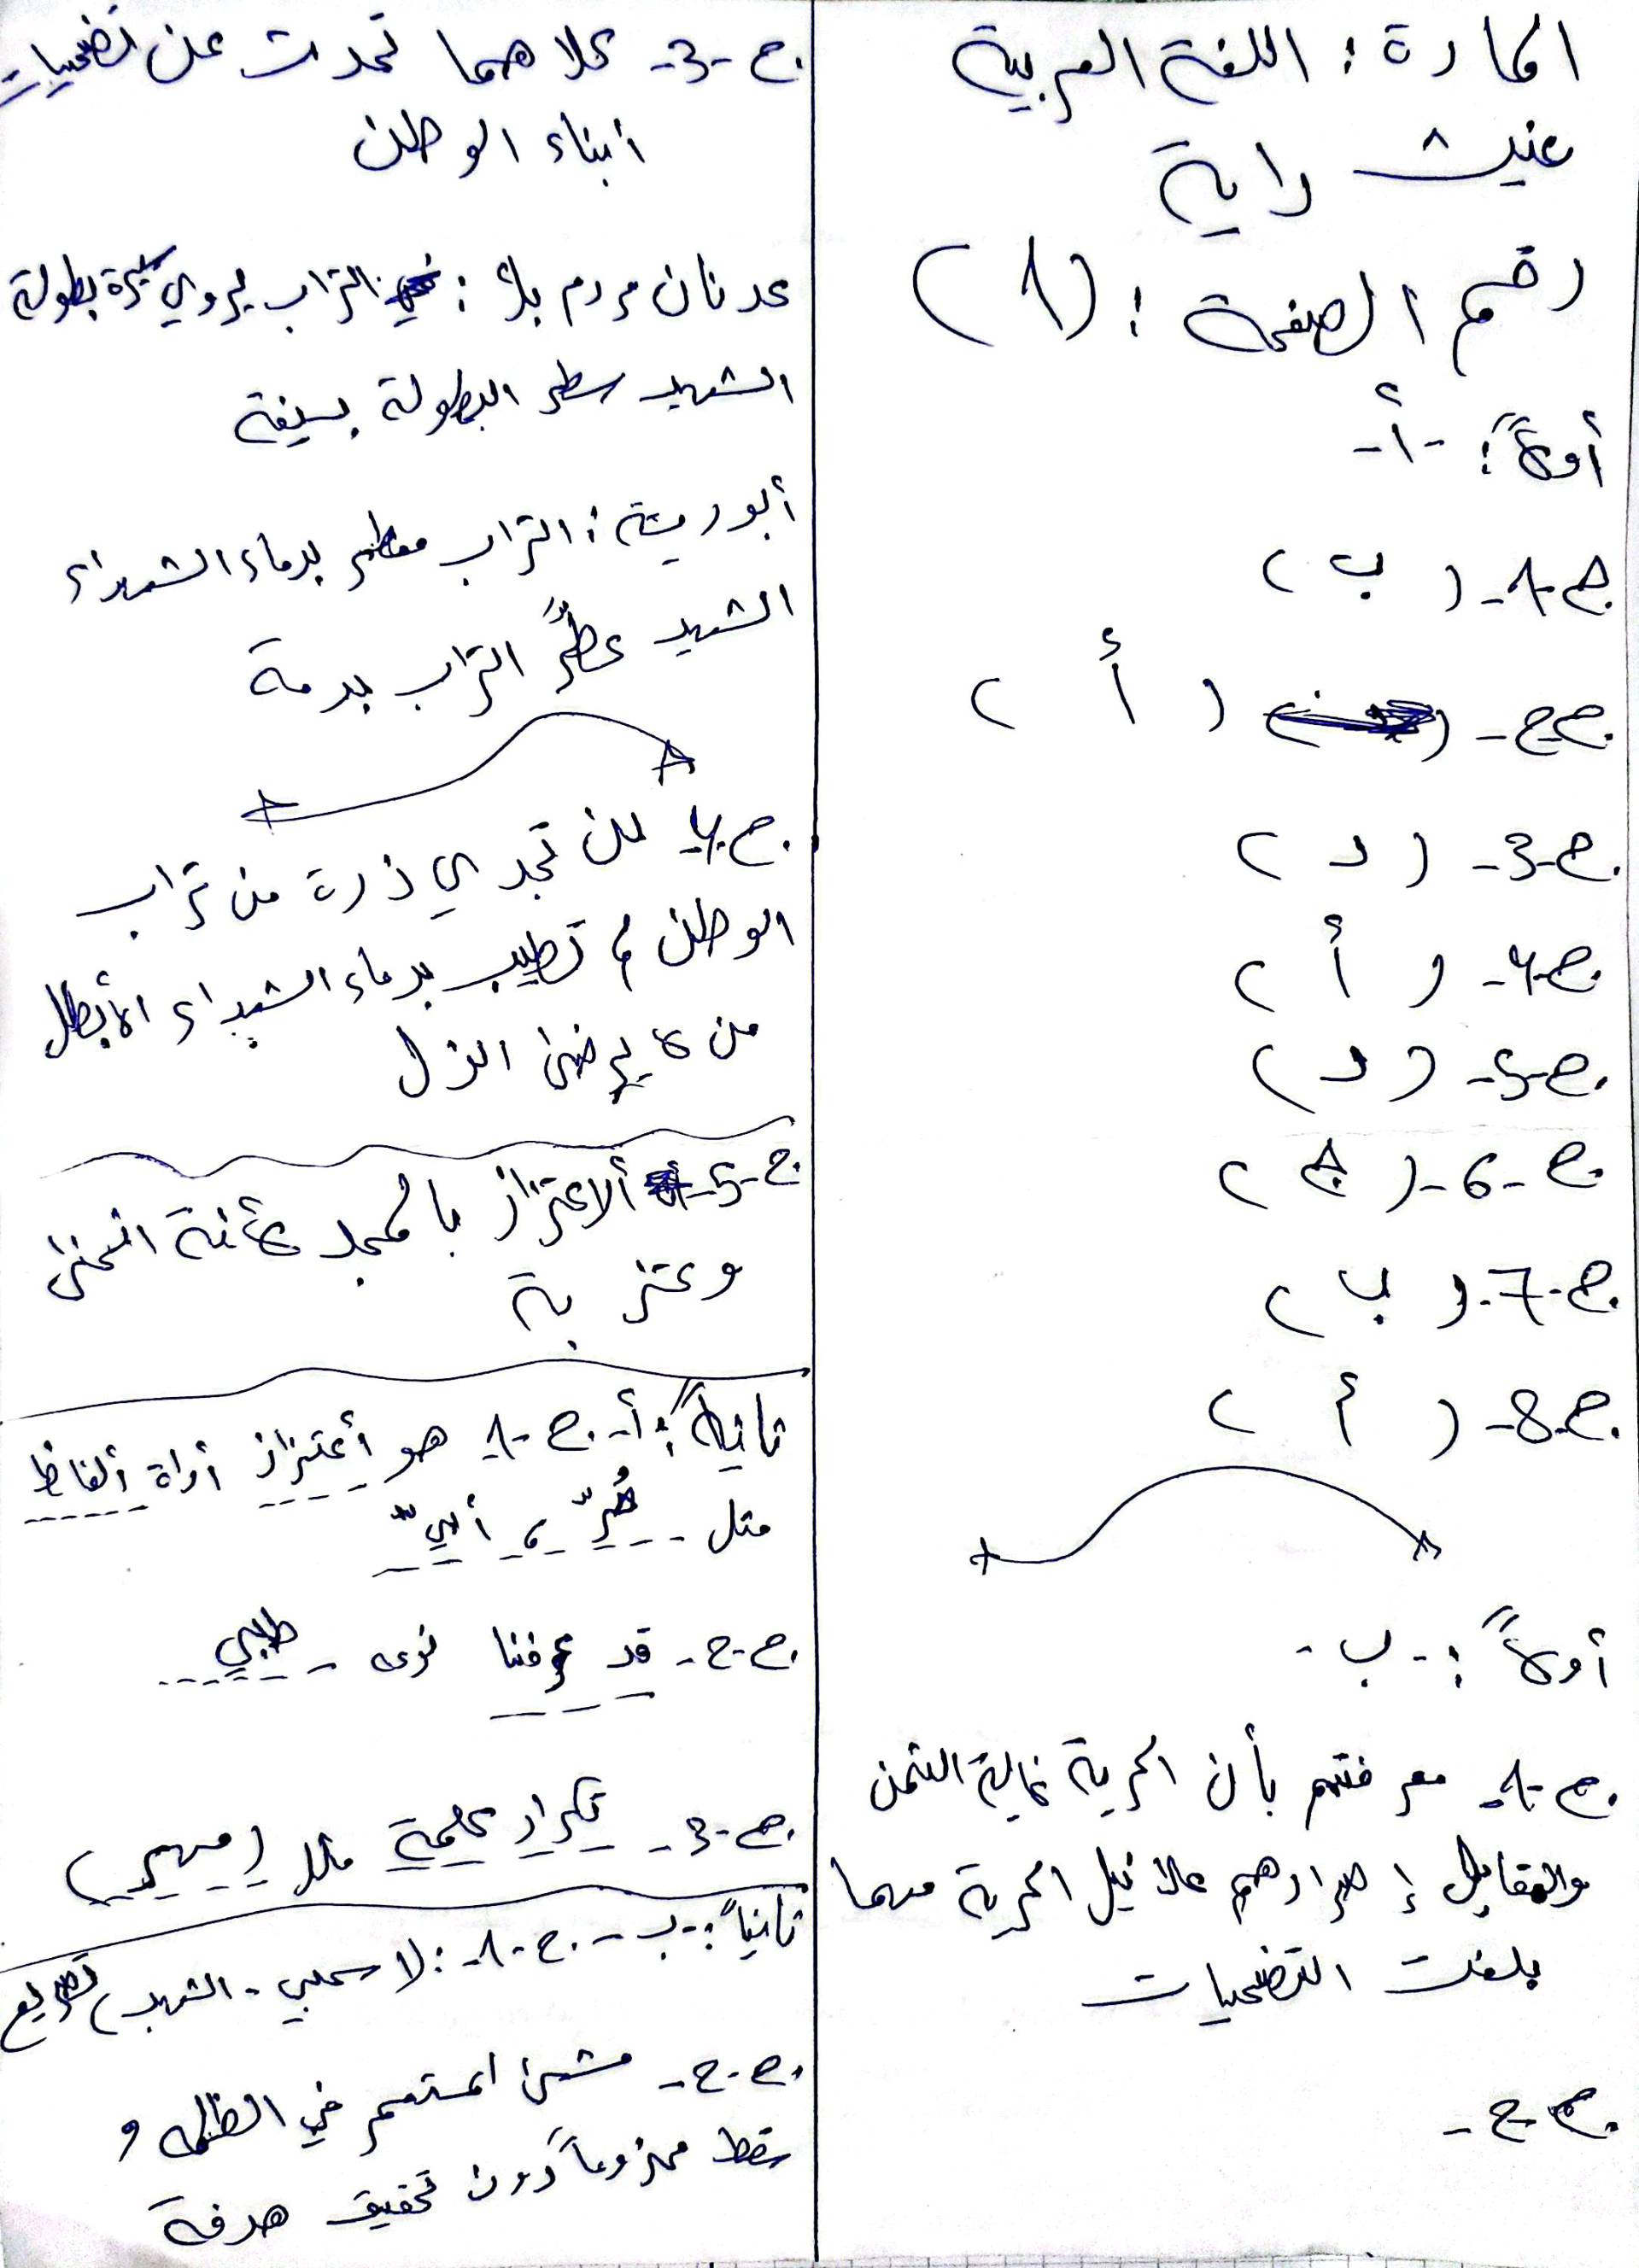 المادة : اللغة العربية
غيث راية
رقم الصفحة : (1)
أولاً : -أ-
ج-1- ( ب )
ج-2- ( أ )
ج-3- ( د )
ج-4- ( أ )
ج-5- ( د )
ج-6- ( ج )
ج-7- ( ب )
ج-8- ( أ )
أولاً : - ب -
ج-1- معرفتهم بأن الحرية غالية الثمن
والمقابل إصرارهم علا نيل الحرية مهما
بلغت التضحيات
ج-2-
ج-3- كلاهما تحدث عن تضحيات
أبناء الوطن
عدنان مردم بك : التراب يروي سيرة بطولة
الشهيد سطر البطولة بسيفة
أبو ريشة : التراب معطر بدماء الشهداء
الشهيد عطَّر التراب بدمة
ج-4- لن تجدي ذرة من تراب
الوطن لم تطيب بدماء الشهداء الأبطال
من لا يرضى الذل
ج-5- ألاعتزاز بالمجد لأنة انحنى
وعتز بة
ثانياً : أ- ج-1- هو أعتزاز أداة ألفاظ
مثل حُرّ ، أبيّ
ج-2- قد عرفنا نوعه طلبي
ج-3- تكرار كلمة مثلا (مهر)
ثانياً : -ب- ج-1- : لا سحبي - الشهب ) تصريع
ج-2- مشى المستعمر في الظلمه و
سقط مهزوماً دون تحقيق هدفة